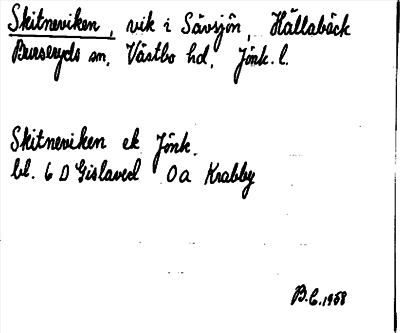 Skitneviken, vik i Sävsjön, Hällabäck
Burseryds sn, Västbo hd, Jönk. l.
Skitneviken ek Jönk.
bl. 6 D Gislaved 0a Krabby
B.C. 1958